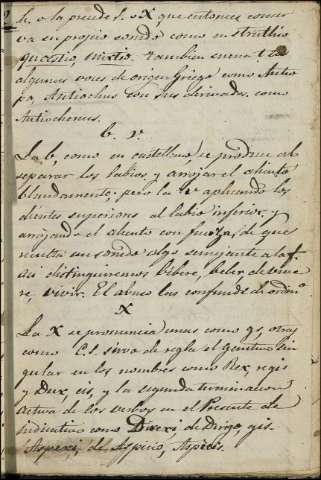 h, o la precede s, o X que entonces conser
va su propio sonido como en struthio
questio, mixtio. Tambien suena t en
algunas voces de origen Griego como Antio
pe, Antiochus con sus derivados, como
Antiochenus.
b. v.
La b, como en castellano, se produce al
separar los labios, y arrojar el aliento
blandamente; pero la v aplicando los
dientes superiores al labio inferior, y
arrojando el aliento con fuerza, de que
resulta un sonido algo semejante a la f.
Asi distinguiremos bibere, beber de vive
re, vivir. El abuso las confunde de ordino
X
La X se pronuncia unas como gs, otras
como C.S. sirva de regla el genitivo sin
gular en los nombres como Rex, regis
y Dux, cis, y la segunda terminacion
activa de los verbos en el Presente de
indicativo como Direxi, de Dirigo, gis.
Aspexi, de Aspicio, Aspicis.